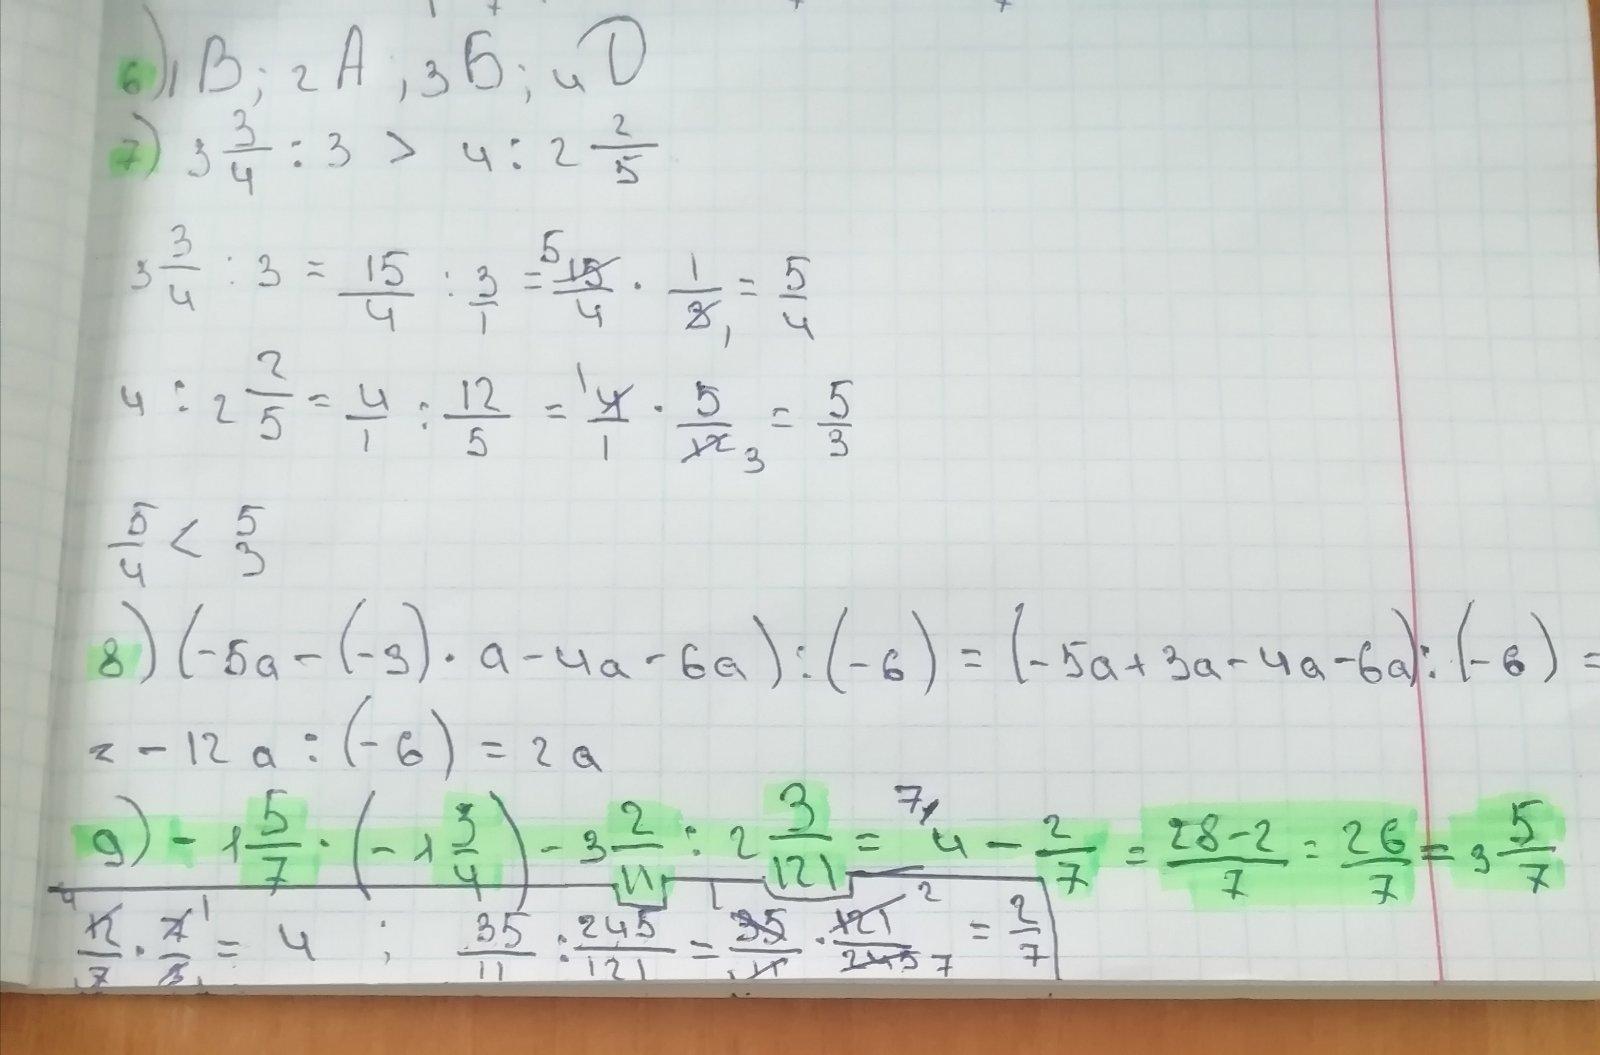 6) 1 В; 2 А; 3 Б; 4 D
7) 3 3/4 : 3 > 4 : 2 2/5
3 3/4 : 3 = 15/4 : 3/1 = 15/4 · 1/3 = 5/4
4 : 2 2/5 = 4/1 : 12/5 = 4/1 · 5/12 = 5/3
5/4 < 5/3
8) (-5a - (-3) · a - 4a - 6a) : (-6) = (-5a + 3a - 4a - 6a) : (-6) =
= -12a : (-6) = 2a
9) -1 5/7 · (-1 3/4) - 3 2/11 : 2 3/121 = 4 - 2/7 = 28-2/7 = 26/7 = 3 5/7
12/7 · 7/3 = 4 ; 35/11 : 245/121 = 35/11 · 121/245 = 2/7